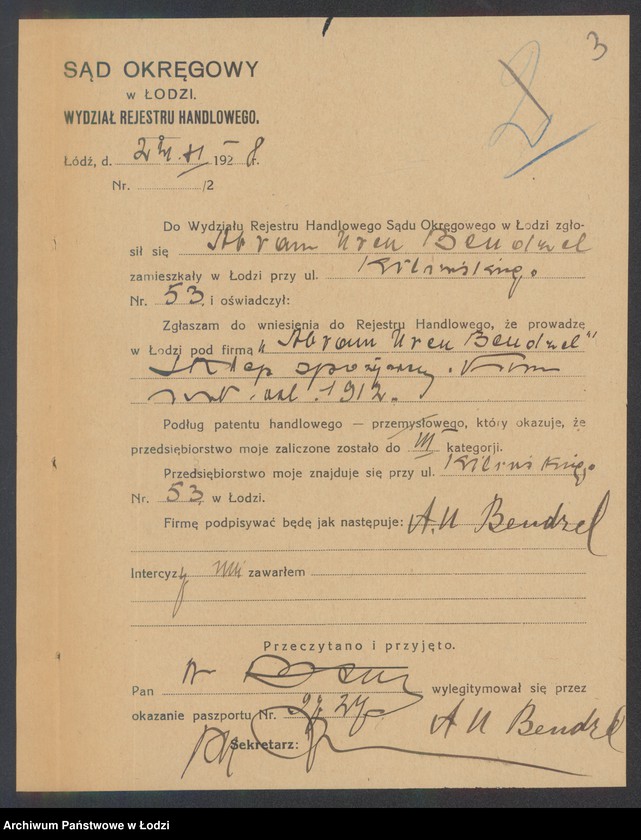 3
SĄD OKRĘGOWY
w ŁODZI.
WYDZIAŁ REJESTRU HANDLOWEGO.
Łódź, d. XI 1928 r.
Nr. /2
Do Wydziału Rejestru Handlowego Sądu Okręgowego w Łodzi zgło-
sił się Abram Uren Bendzel
zamieszkały w Łodzi przy ul. Kilińskiego
Nr. 53, i oświadczył:
Zgłaszam do wniesienia do Rejestru Handlowego, że prowadzę
w Łodzi pod firmą „Abram Uren Bendzel"
Sklep spożywczy. Firma
istn. od 1912.
Podług patentu handlowego — przemysłowego, który okazuje, że
przedsiębiorstwo moje zaliczone zostało do III kategorji.
Przedsiębiorstwo moje znajduje się przy ul. Kilińskiego
Nr. 53, w Łodzi.
Firmę podpisywać będę jak następuje: A. U Bendzel
Intercyzy nie zawarłem
Przeczytano i przyjęto.
Pan wylegitymował się przez
okazanie paszportu Nr.
A U Bendzel
Sekretarz:
Archiwum Państwowe w Łodzi